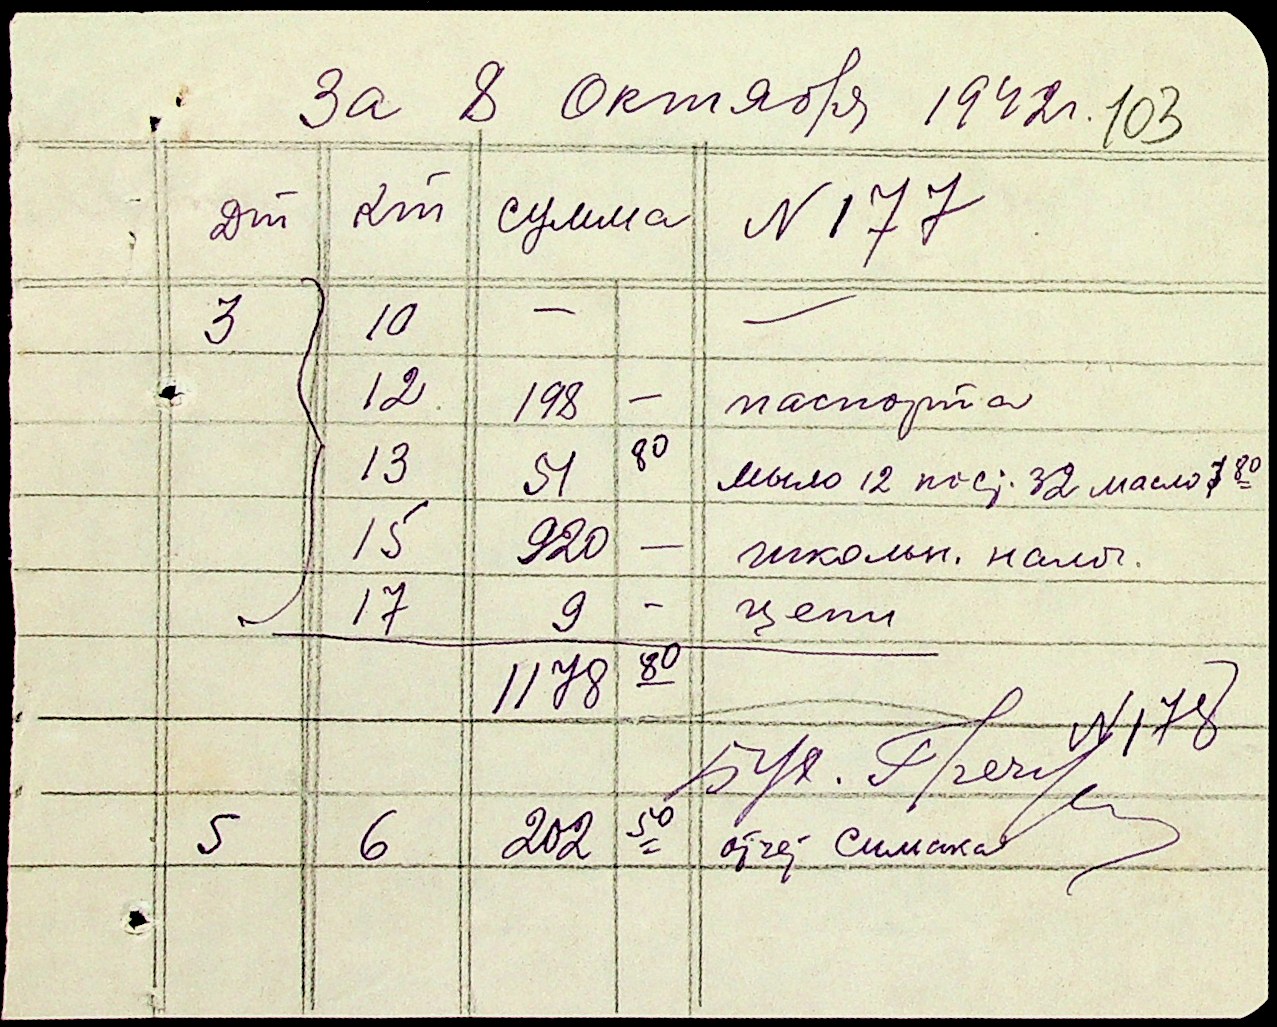 За 8 Октября 1942г. 103
Дт Кт сумма N 177
3 10 — —
12 198 — паспорта
13 51 80 мыло 12 пос. 32 масло 7 80
15 920 — школьн. налог.
17 9 - цепи
1178 80
N 178
Бух.
5 6 202 50 отчет Симака